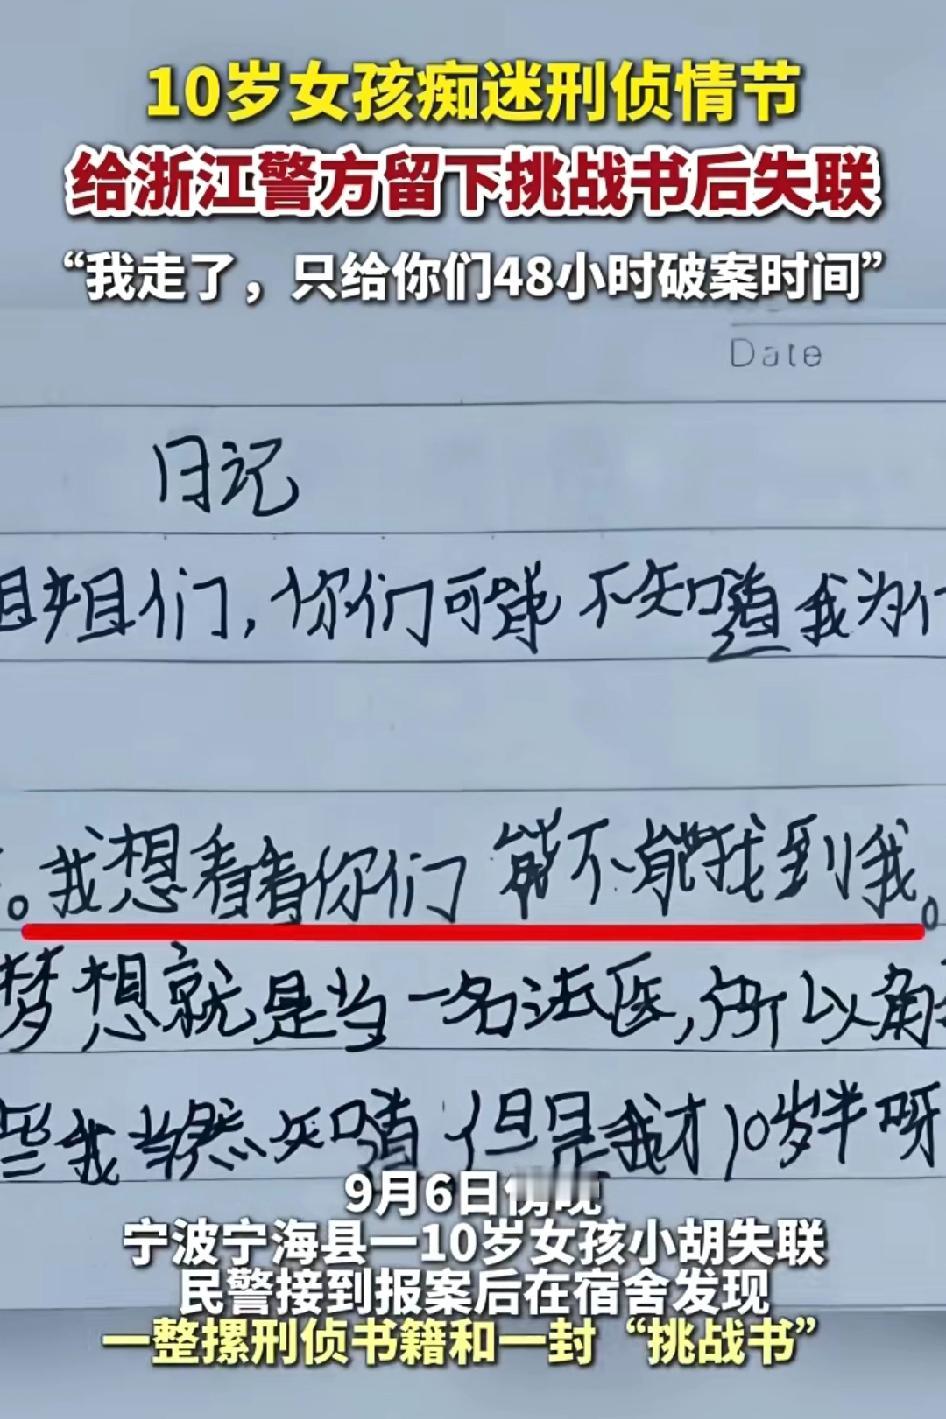 10岁女孩痴迷刑侦情节
给浙江警方留下挑战书后失联
“我走了，只给你们48小时破案时间”
Date
日记
姐姐们，你们可能不知道我为什
。我想看看你们能不能找到我。
梦想就是当一名法医，所以解
些我当然知道但是我才10岁半呀
9月6日傍晚
宁波宁海县一10岁女孩小胡失联
民警接到报案后在宿舍发现
一整摞刑侦书籍和一封“挑战书”